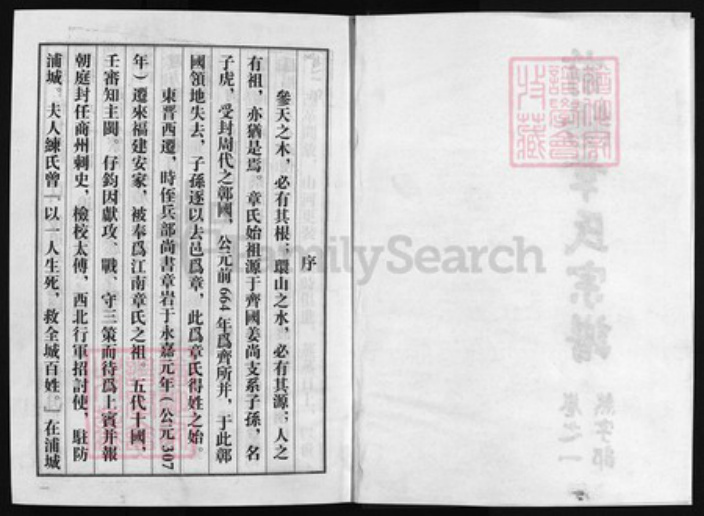 序
參天之木，必有其根；環山之水，必有其源；人之
有祖，亦猶是焉。章氏始祖源于齊國姜尚支系子孫，名
子虎，受封周代之鄣國，公元前664年爲齊所并，于此鄣
國領地失去，子孫逐以去邑爲章，此爲章氏得姓之始。
東晋西遷，時侄兵部尚書章岩于永嘉元年（公元307
年）遷來福建安家，被奉爲江南章氏之祖。五代十國，
王審知主閩，仔鈞因獻攻、戰、守三策而待爲上賓并報
朝庭封任商州刺史，檢校太傅，西北行軍招討使，駐防
浦城。夫人練氏曾「以一人生死，救全城百姓。」在浦城
章氏宗譜
卷之一
FamilySearch